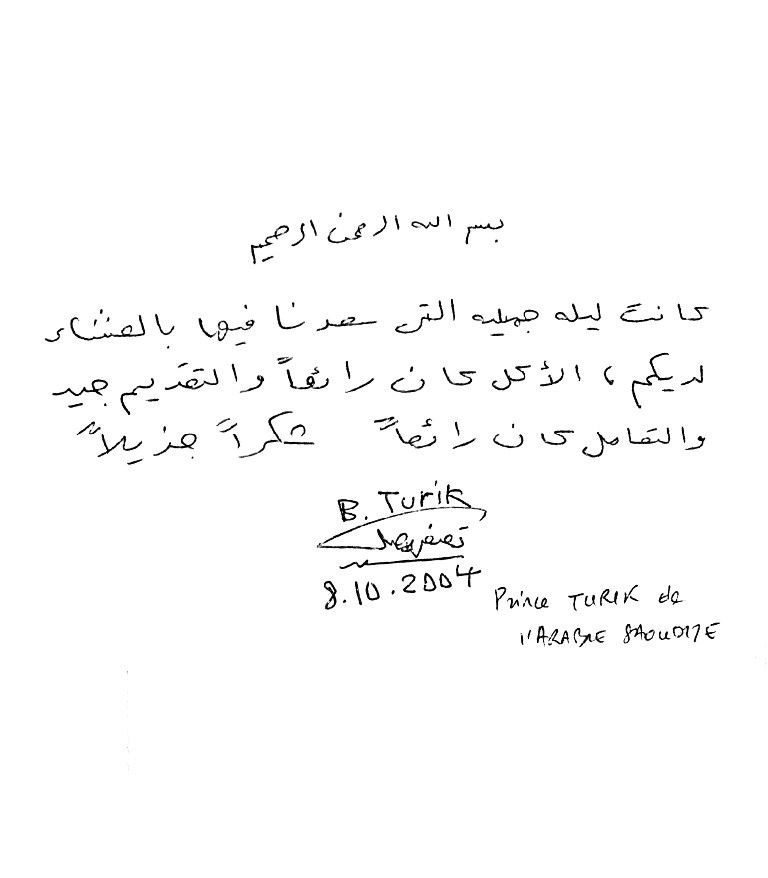 بسم الله الرحمن الرحيم
كانت ليله جميله التي سعدنا فيها بالعشاء
لديكم، الأكل كان رائعاً والتقديم جيد
والتعامل كان رائعاً شكراً جزيلاً
B. Turik
8.10.2004
Prince TURIK de
l'ARABIE SAOUDITE